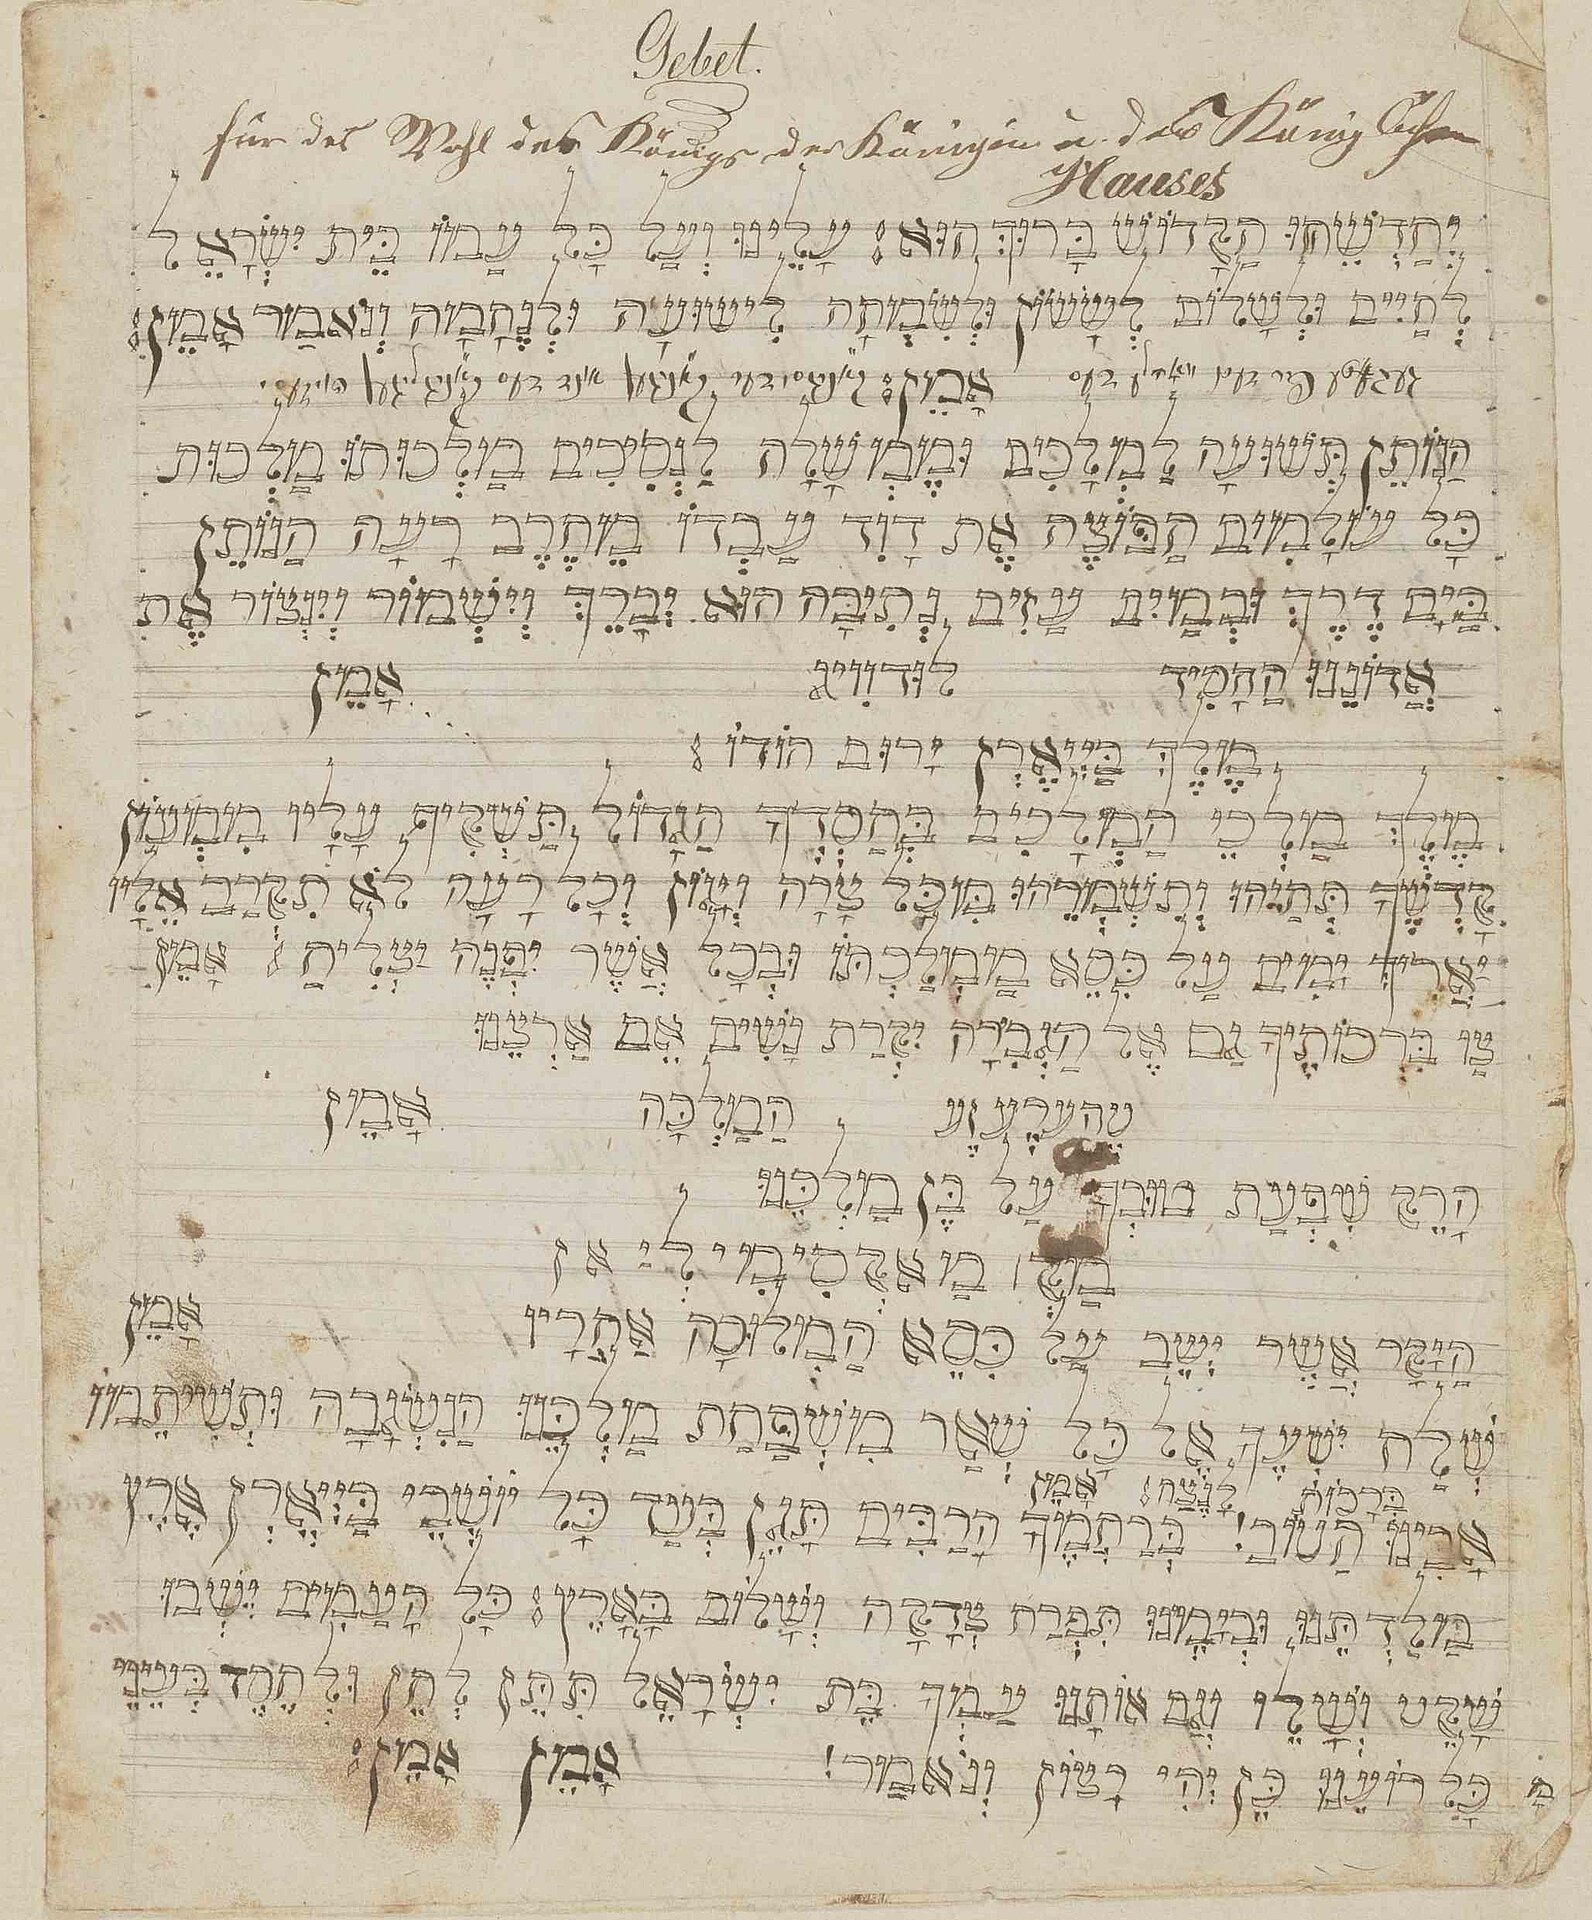 Gebet.
für des Wohl des Königs der Königin u. des Königlichen
Hauses
יְחַדְשֵׁהוּ הַקָדוֹשׁ בָּרוּךְ הוּא: עָלֵינוּ וְעַל כָּל עַמוֹ בֵּית יִשְׂרָאֵל
לְחַיִים וּלְשָׁלוֹם לְשָׂשׂוֹן וּלְשִׂמְחָה לִישׁוּעָה וּלְנֶחָמָה וְנֹאמַר אָמֵן:
אָמֵן:
הַנוֹתֵן תְּשׁוּעָה לַמְלָכִים וּמֶמְשָׁלָה לַנְסִיכִים מַלְכוּתוֹ מַלְכוּת
כָּל עוֹלָמִים הַפּוֹצֶה אֶת דָוִד עַבְדוֹ מֵחֶרֶב רָעָה הַנוֹתֵן
בַּיָם דֶרֶךְ וּבְמַיִם עַזִים נְתִיבָה הוּא יְבָרֵךְ וְיִשְׁמוֹר וְיִנְצוֹר אֶת
אֲדוֹנֵנוּ הַחָסִיד לוּדוויג אָמֵן
מֶלֶךְ בַּייֶארְן יָרוּם הוֹדוֹ:
מֶלֶךְ מַלְכֵי הַמְלָכִים בְּחַסְדְךָ הַגָדוֹל תַּשְׁקִיף עָלָיו מִמְעוֹן
קָדְשֶׁךָ תְּחַיֵהוּ וְתִשְׁמְרֵהוּ מִכָּל צָרָה וְיָגוֹן וְכָל רָעָה לֹא תִקְרַב אֵלָיו
יַאֲרִיךְ יָמִים עַל כִּסֵא מַמְלַכְתּוֹ וּבְכָל אֲשֶׁר יִפְנֶה יַצְלִיחַ: אָמֵן
צַו בִּרְכוֹתֶיךָ גַם אֶל הַגְבִירָה יִקְרַת נָשִׁים אֵם אַרְצֵנוּ
טֶהערֶעזֶע הַמַלְכָּה אָמֵן
הָרֵק שִׁפְעַת טוּבְךָ עַל בֶּן מַלְכֵּנוּ
מַאקְסִימִילִיאַן
הַיָקָר אֲשֶׁר יֵשֵׁב עַל כִּסֵא הַמְלוּכָה אַחֲרָיו אָמֵן
שְׁלַח יִשְׁעֲךָ אֶל כָּל שְׁאָר מִשְׁפַּחַת מַלְכֵּנוּ הַנִשְׂגָבָה וּתְשִׁיתֵמוֹ
בְּרָכוֹת לָנֶצַח: אָמֵן
אָבִינוּ הַטוֹב! בְּרַחֲמֶיךָ הָרַבִּים תָּגֵן בְּעַד כָּל יוֹשְׁבֵי בַּייֶארְן אֶרֶץ
מוֹלַדְתֵּנוּ וּבְיָמֵינוּ תִּפְרַח צְדָקָה וְשָׁלוֹם בָּאָרֶץ: כָּל הָעַמִים יֵשְׁבוּ
שָׁקֵט וְשָׁלֵו וְגַם אוֹתָנוּ עַמְךָ בֵּת יִשְׂרָאֵל תִּתֵּן לְחֵן וּלְחֶסֶד בְּעֵינֵי
כָּל רוֹעֵנוּ כֵּן יְהִי רָצוֹן וְנֹאמַר! אָמֵן אָמֵן: